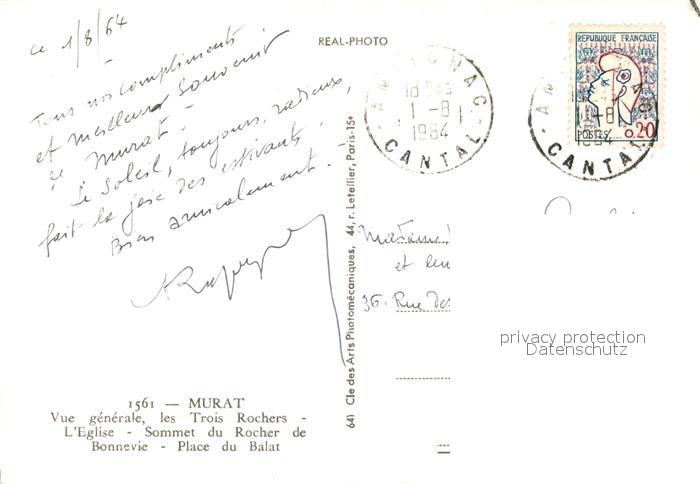 ce 1/8/64
Tous nos compliments
et meilleur souvenir
de Murat.
Le Soleil, toujours, radieux,
fait la joie des estivants
Bien amicalement.
REAL-PHOTO
18H45
1-8
1964
CANTAL
REPUBLIQUE FRANÇAISE
POSTES 0,20
1-8
1964
CANTAL
641 Cie des Arts Photomécaniques, 44, r. Letellier, Paris-15e
et
36. Rue des
privacy protection
Datenschutz
1561 — MURAT
Vue générale, les Trois Rochers -
L'Eglise - Sommet du Rocher de
Bonnevie - Place du Balat